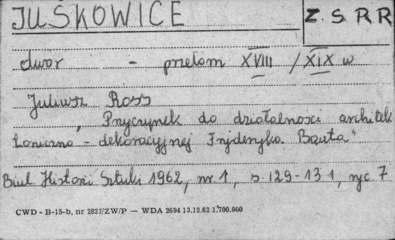 JUŚKOWICE Z.S.R.R
dwór - przełom XVIII / XIX w
Juliusz Ross
„Przyczynek do działalności architek
toniczno - dekoracyjnej Fryderyka Bauta"
Biul Historii Sztuki 1962, nr 1, s. 129-131, ryc 7
CWD - B-15-b, nr 2827/ZW/P — WDA 2694 13.12.62 1.700.000